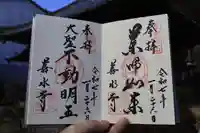 奉拝
令和七年
薬師如来
善水寺
奉拝
令和七年
大聖不動明王
善水寺